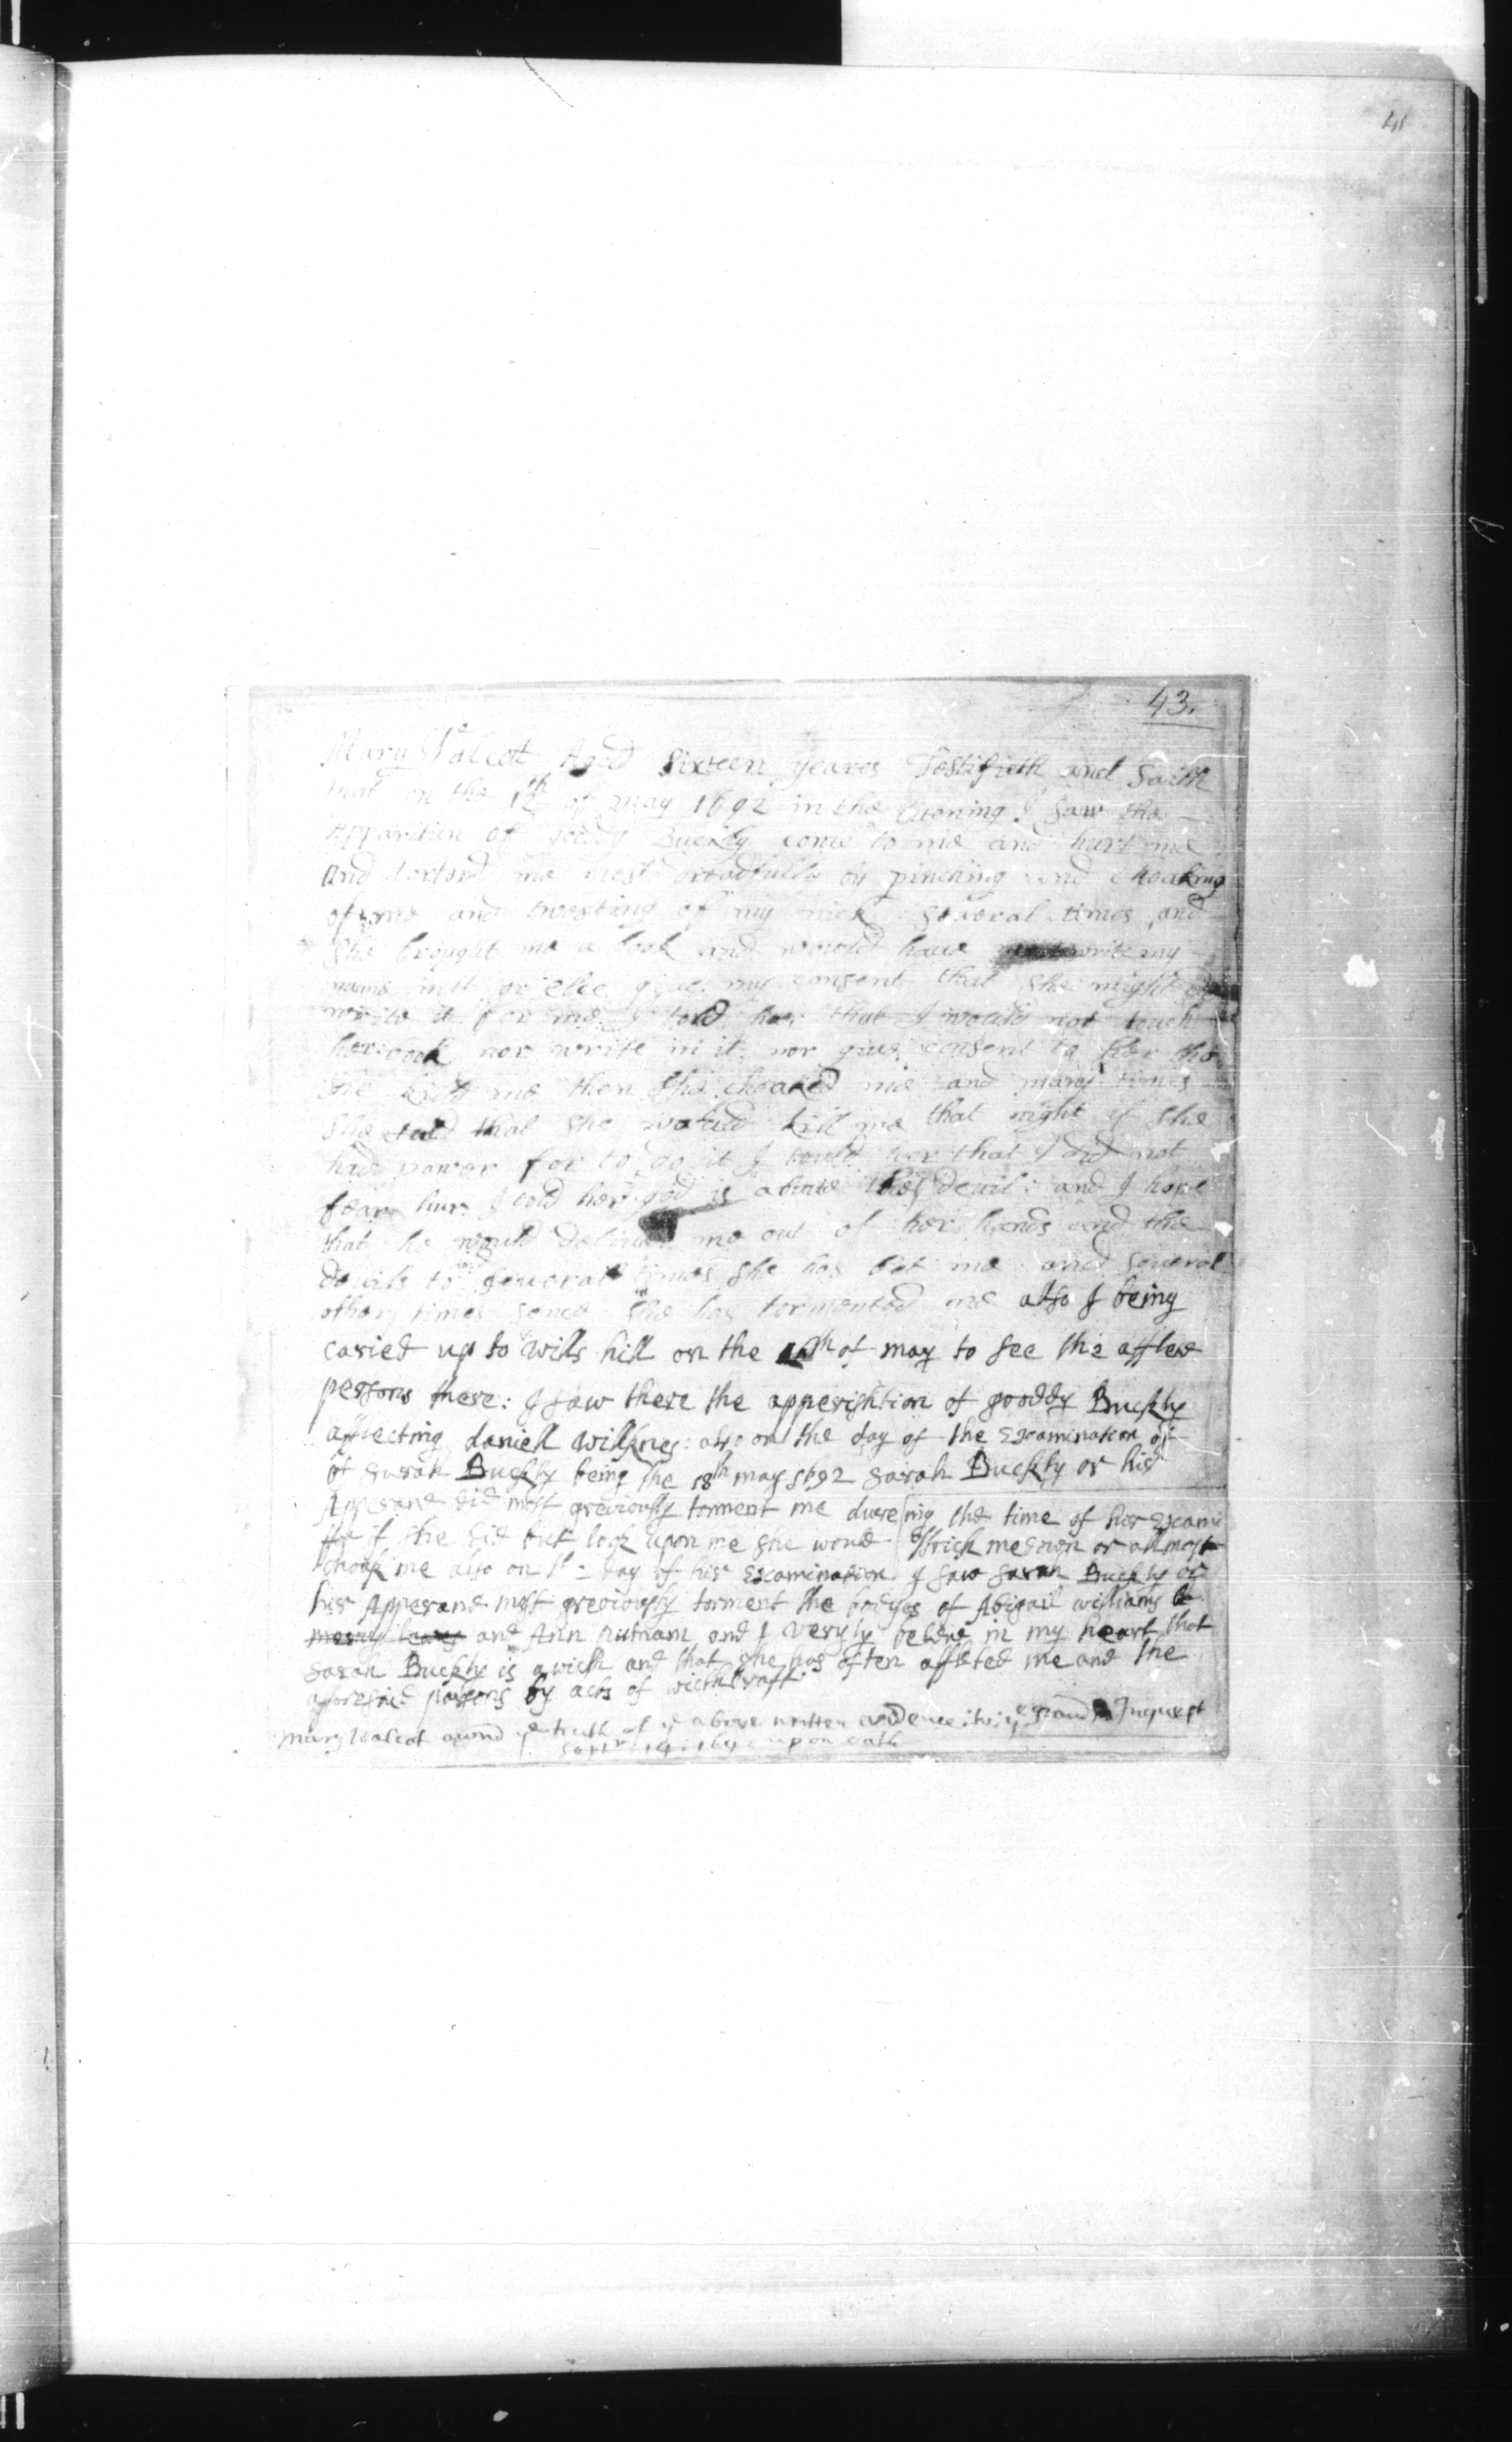 41
43.
Mary Walcott Aged Sixteen yeares Testifieth and Saith
that on the 12th of may 1692 in the Evening I saw the
Apparition of goody Buckly come to me and hurt me
and tortord me most dreadfully by pinching and choaking
of me and twesting of my nick several times and
she brought me a book and would have write my
name in it or elce give my consent that she might
write it for me I told her that I would not touch
her book nor write in it nor give consent to her tho
she kild me then she choaked me and many times
she told that she would kill me that night if she
had power for to do it I tould her that I did not
fear hur I told her god is above the devil: and I hope
that he would deliver me out of her hands and the
devils to several times she has bet me and several
other times senc she has tormented me also I being
caried up to wils hill on the th of may to see the afflect
persons there: I saw there the apperishtion of gooddy Buckly
afflecting daniell wilknes: also on the day of the Examination of
of Sarah Buckly being the 18th may 1692 Sarah Buckly or hir
Apperanc did most greviously torment me dureing the time of her Exami
ffor if she did but look upon me she would strick me down or allmost
choak me also on the day of hir Examination I saw Sarah Buckly or
hir Apperanc most greviously torment the bodyes of Abigail williams &
mercy lewes and Ann putnam and I veryly beleve in my heart that
Sarah Buckly is a wicth and that she has often affleted me and the
afforesaid persons by acts of wicthcraft
Mary Walcot ownd ye truth of ye above written evidence: to ye grand Inquest
Septr 14: 1692 upon oath